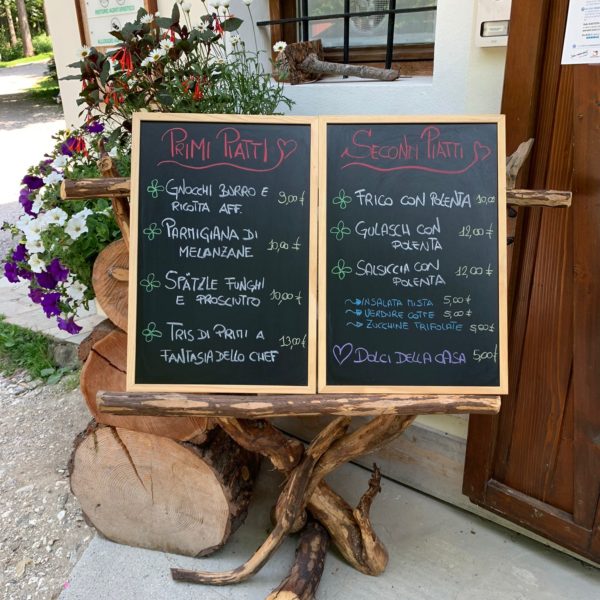 PRIMI PIATTI
GNOCCHI BURRO E
RICOTTA AFF.
9,00€
PARMIGIANA DI
MELANZANE
10,00€
SPÄTZLE FUNGHI
E PROSCIUTTO
10,00€
TRIS DI PRIMI A
FANTASIA DELLO CHEF
13,00€
SECONDI PIATTI
FRICO CON POLENTA 10,00
GULASCH CON
POLENTA
12,00€
SALSICCIA CON
POLENTA
12,00€
INSALATA MISTA 5,00€
VERDURE COTTE 5,00€
ZUCCHINE TRIFOLATE 5,00€
DOLCI DELLA CASA 5,00€